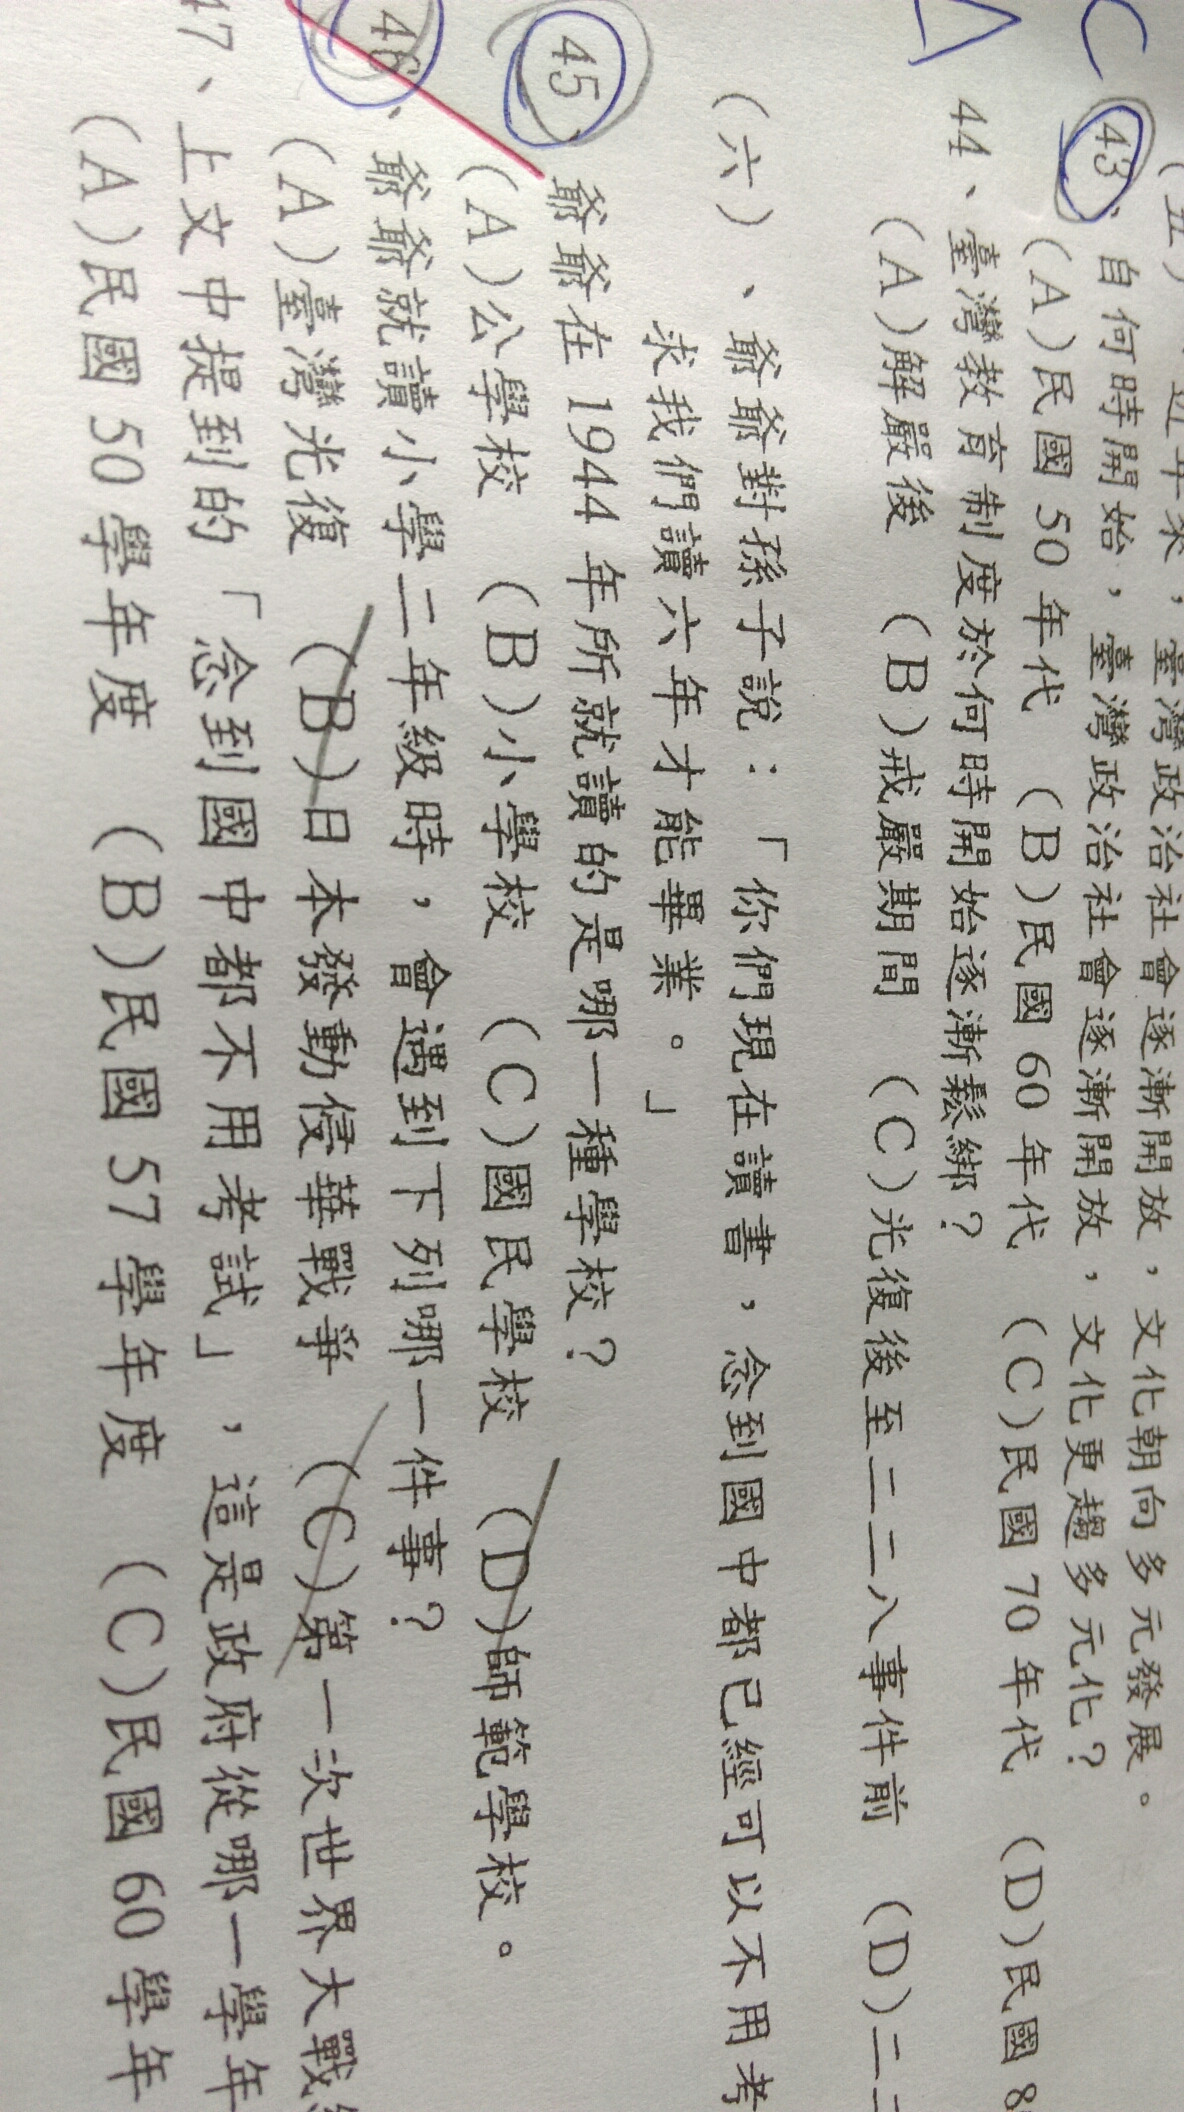 C
(五)
近年來，臺灣政治社會逐漸開放，文化朝向多元發展。
43、自何時開始，臺灣政治社會逐漸開放，文化更趨多元化？
(A)民國 50 年代 (B)民國 60 年代 (C)民國 70 年代 (D)民國 8
A
44、臺灣教育制度於何時開始逐漸鬆綁？
(A)解嚴後 (B)戒嚴期間 (C)光復後至二二八事件前 (D)二二
(六)、爺爺對孫子說：「你們現在讀書，念到國中都已經可以不用考
求我們讀六年才能畢業。」
45、爺爺在 1944 年所就讀的是哪一種學校？
(A)公學校 (B)小學校 (C)國民學校 (D)師範學校。
46、爺爺就讀小學二年級時，會遇到下列哪一件事？
(A)臺灣光復 (B)日本發動侵華戰爭 (C)第一次世界大戰
47、上文中提到的「念到國中都不用考試」，這是政府從哪一學年
(A)民國 50 學年度 (B)民國 57 學年度 (C)民國 60 學年